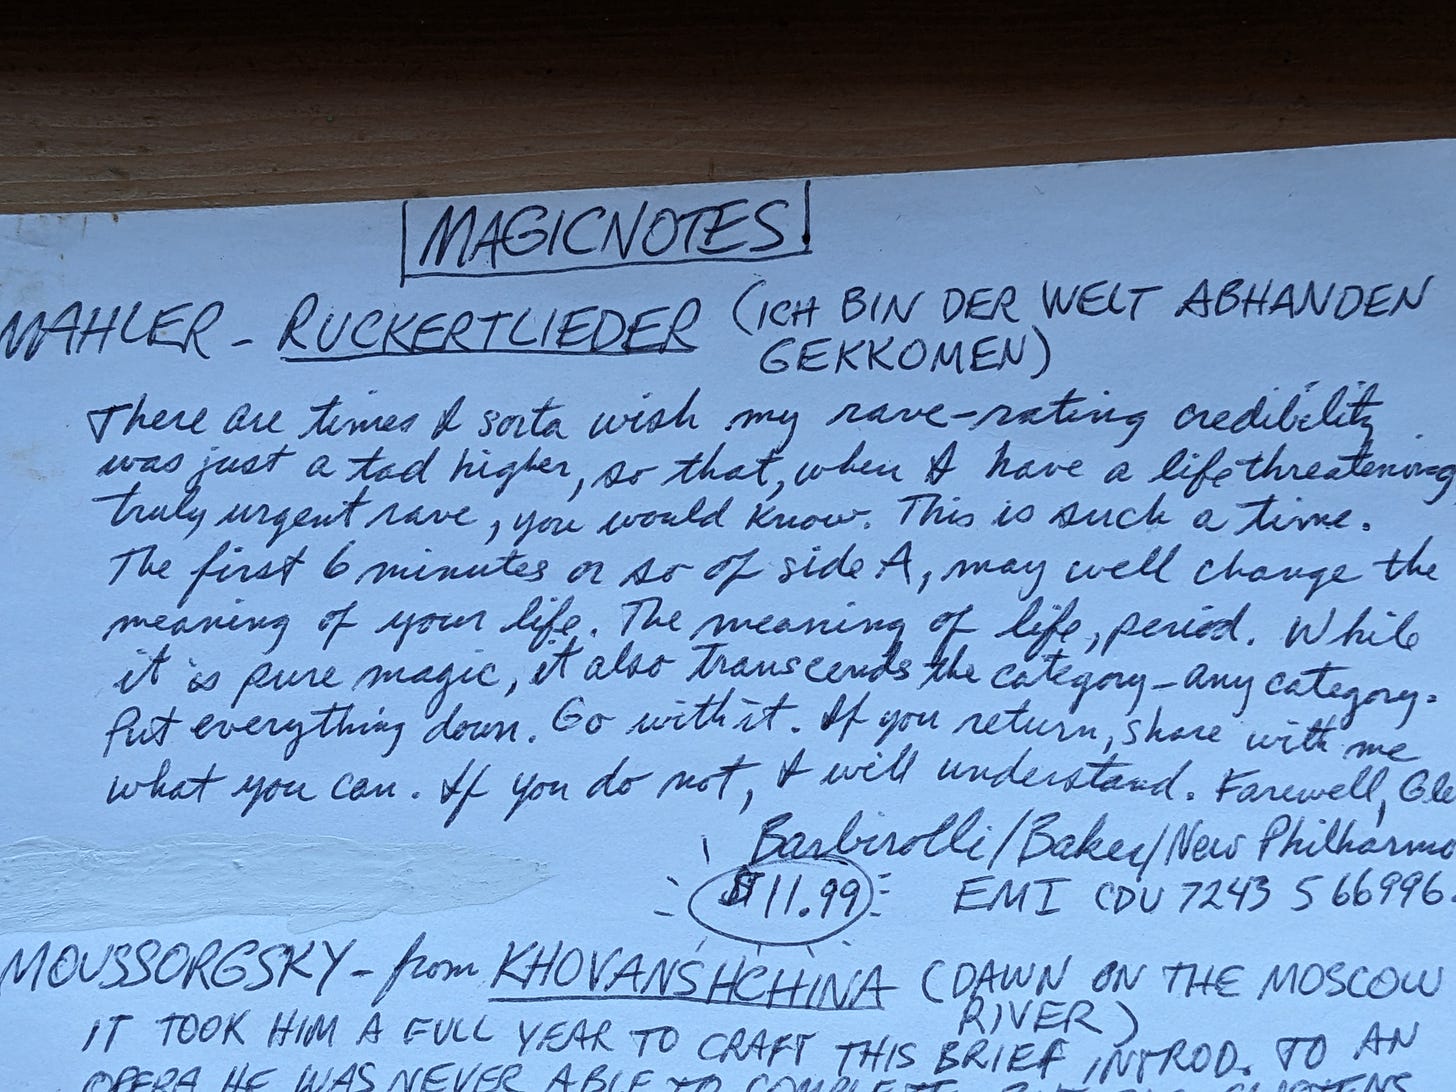 MAGICNOTES
MAHLER - RUCKERTLIEDER (ICH BIN DER WELT ABHANDEN
GEKKOMEN)
There are times I sorta wish my rave-rating credibility
was just a tad higher, so that, when I have a life threatening
truly urgent rave, you would know. This is such a time.
The first 6 minutes or so of side A, may well change the
meaning of your life. The meaning of life, period. While
it is pure magic, it also transcends the category - any category.
Put everything down. Go with it. If you return, share with me
what you can. If you do not, I will understand. Farewell, Gle
Barbirolli/Baker/New Philharmo
$11.99 EMI CDU 7243 5 66996
MOUSSORGSKY - from KHOVANSHCHINA (DAWN ON THE MOSCOW
RIVER)
IT TOOK HIM A FULL YEAR TO CRAFT THIS BRIEF INTROD. TO AN
OPERA HE WAS NEVER ABLE TO